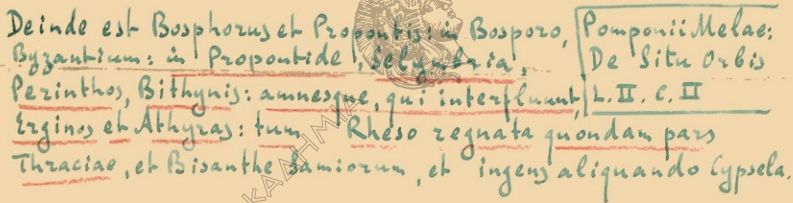 Deinde est Bosphorus et Propontis: in Bosporo,
Byzantium: in Propontide, Selymbria,
Perinthos, Bithynis: amnesque, qui interfluunt,
Erginos et Athyras: tum Rheso regnata quondam pars
Thraciae, et Bisanthe Samiorum, et ingens aliquando Cypsela.
Pomponii Melae:
De Situ Orbis
L. II. C. II